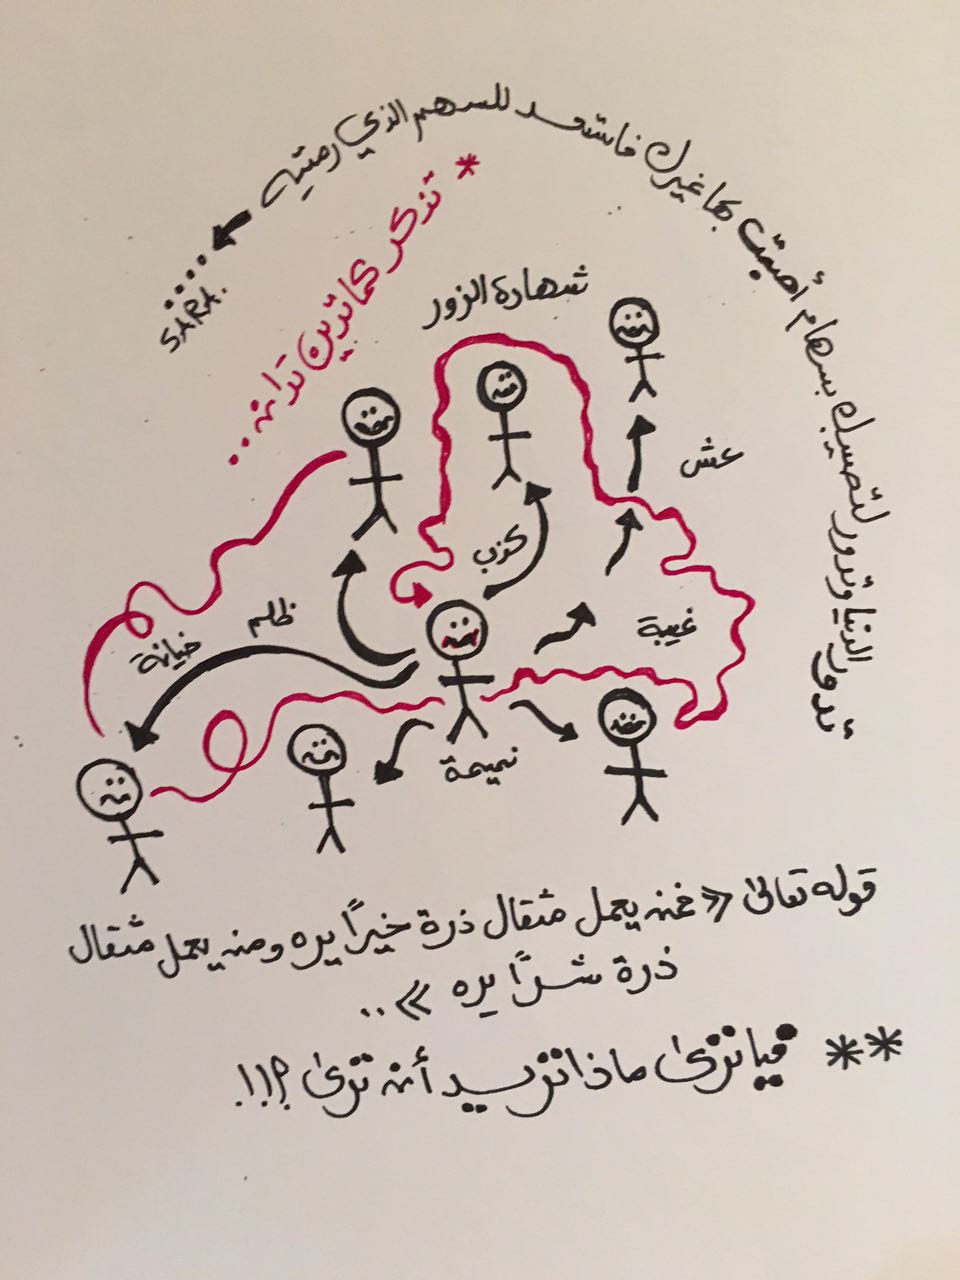 تدور الدنيا وتدور لتصيبك بسهام أصبت بها غيرك فاستعد للسهم الذي رميته ....
SARA.
* تذكر كما تدين تدان ...
شهادة الزور
عش
كزب
غيبة
ظلم
خيانة
نميمة
قوله تعالى « فمن يعمل مثقال ذرة خيرًا يره ومن يعمل مثقال
ذرة شرًا يره » ..
** فيا ترى ماذا تريد أن ترى ؟!!.